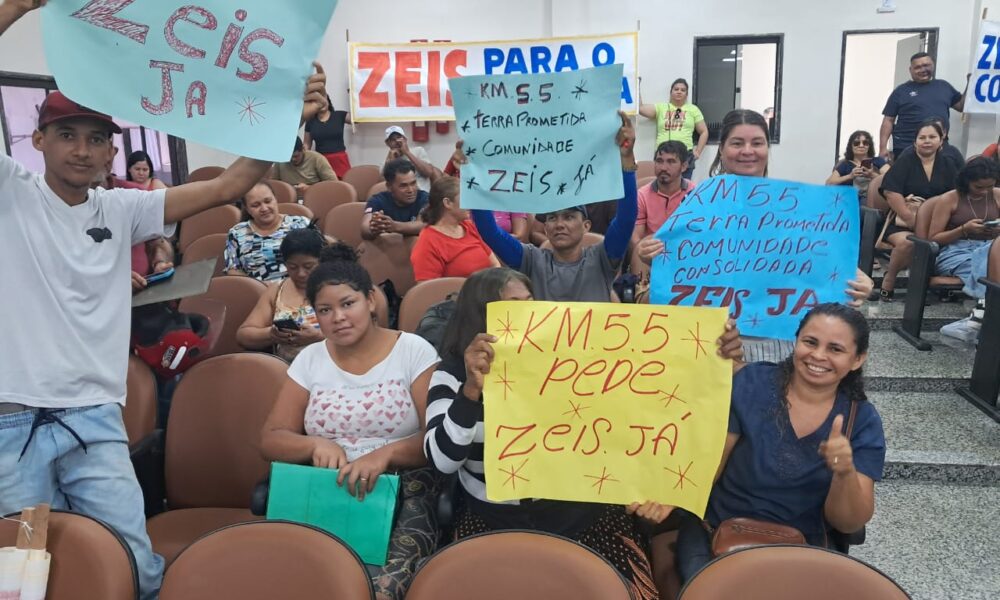 zeis
JA
ZEIS PARA O
KM.5.5
TERRA PROMETIDA
COMUNIDADE
ZEIS JÁ
KM 5.5
TERRA PROMETIDA
COMUNIDADE
CONSOLIDADA
ZEIS JÁ
KM.5.5
PEDE
ZEIS.JÁ
ZE
CO